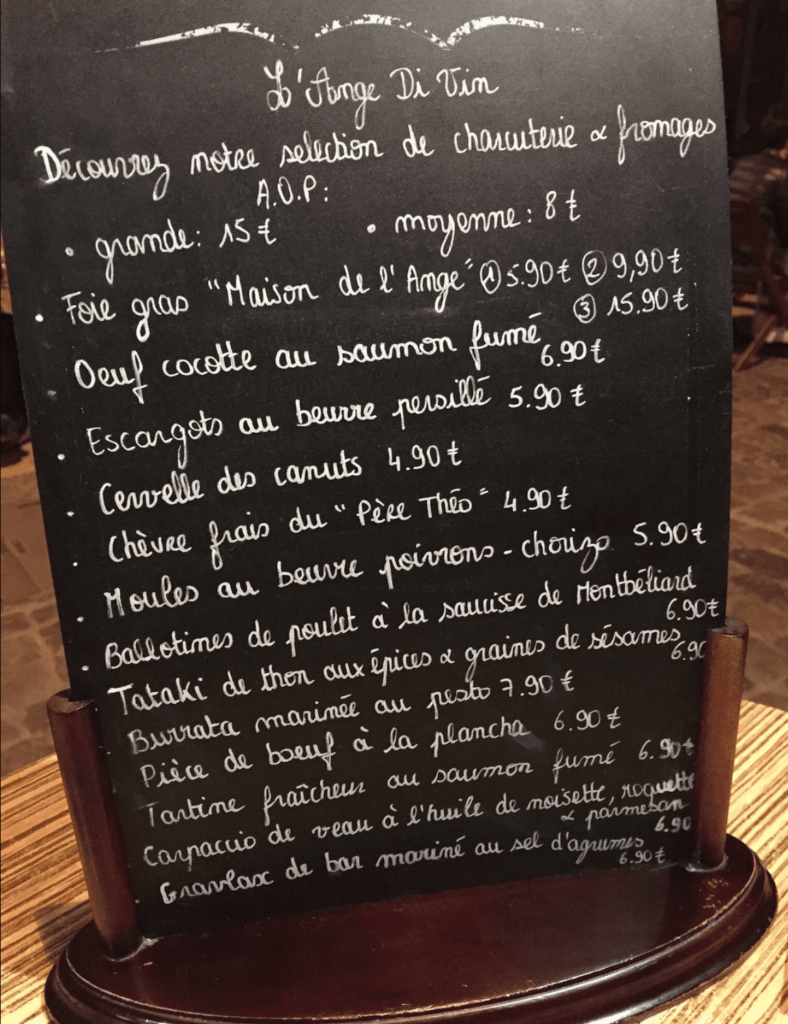 L'Ange Di Vin
Découvrez notre selection de charcuterie & fromages
A.O.P:
• grande: 15 € • moyenne: 8 €
• Foie gras "Maison de l'Ange" ① 5.90 € ② 9,90 €
③ 15.90 €
Oeuf cocotte au saumon fumé
6.90 €
• Escargots au beurre persillé 5.90 €
• Cervelle des canuts 4.90 €
• Chèvre frais du "Père Théo" 4.90 €
• Moules au beurre poivrons - chorizo 5.90 €
• Ballotines de poulet à la saucisse de Montbéliard
6.90 €
Tataki de thon aux épices & graines de sésames
6.90
Burrata marinée au pesto 7.90 €
Pièce de boeuf à la plancha 6.90 €
Tartine fraîcheur au saumon fumé 6.90 €
Carpaccio de veau à l'huile de noisette, roquette
& parmesan
6.90
Gravlax de bar mariné au sel d'agrumes
6.90 €